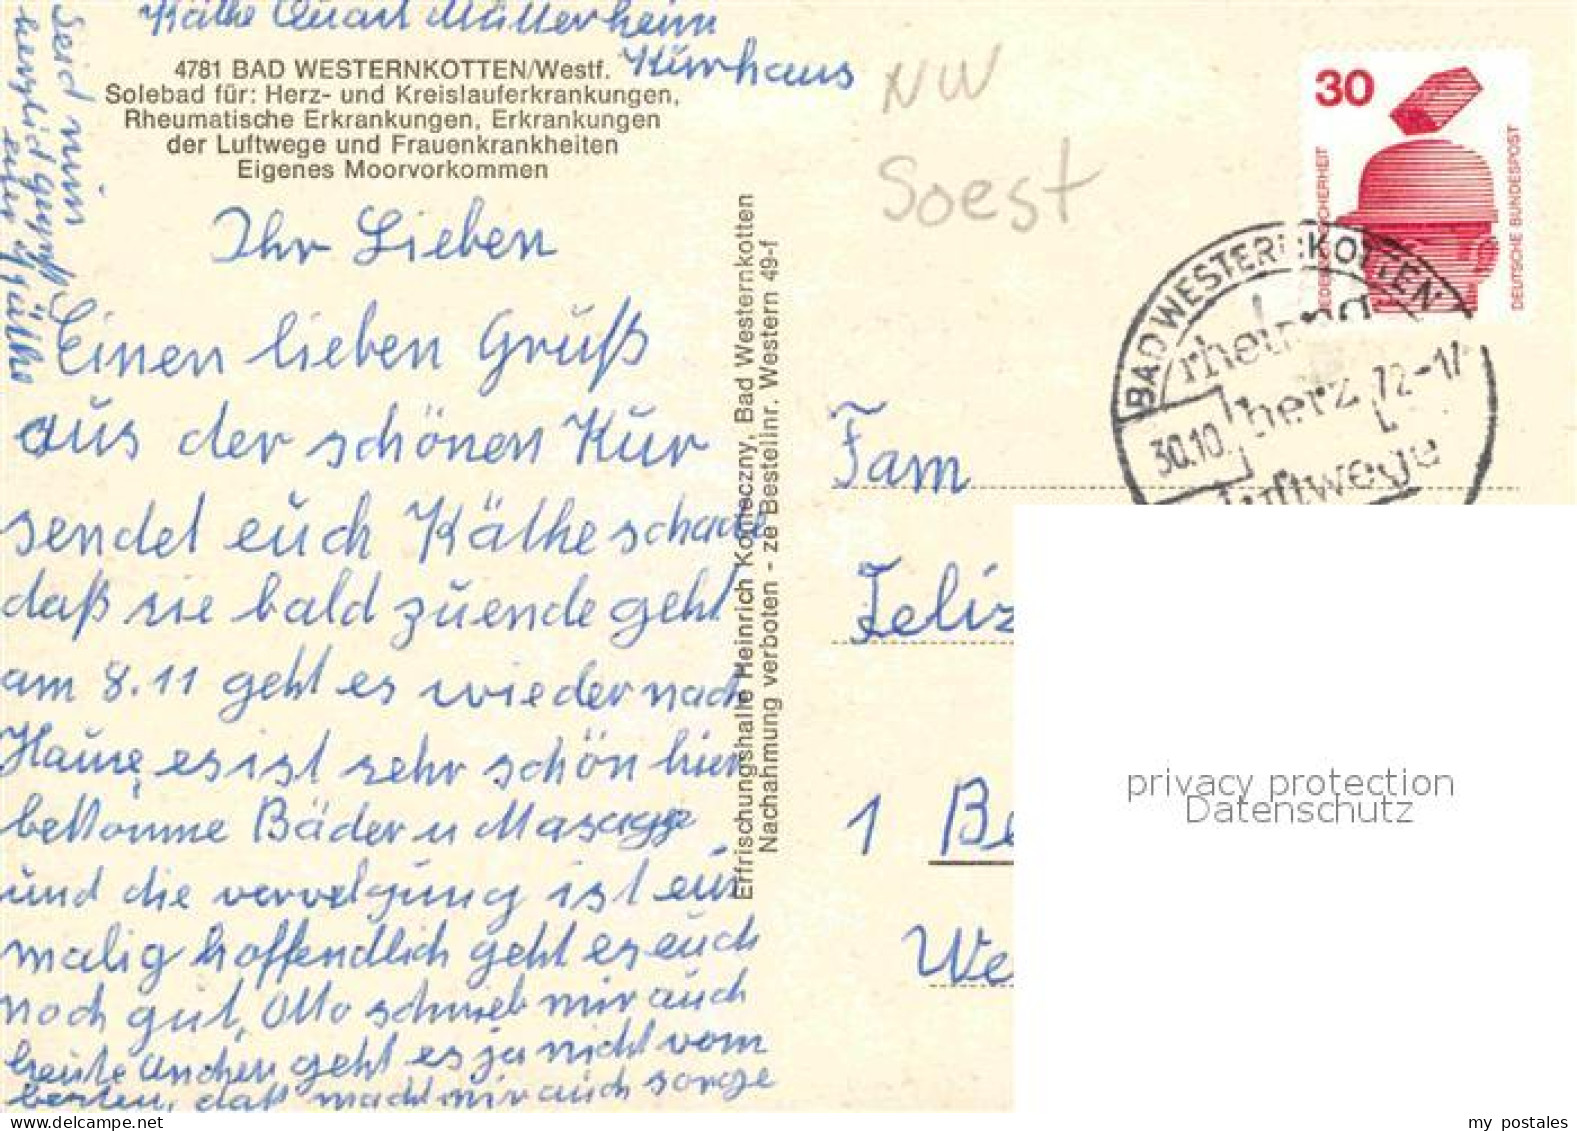 Käthe Quast Müllerheim
Kurhaus
4781 BAD WESTERNKOTTEN/Westf.
Solebad für: Herz- und Kreislauferkrankungen,
Rheumatische Erkrankungen, Erkrankungen
der Luftwege und Frauenkrankheiten
Eigenes Moorvorkommen
Ihr Lieben
Einen lieben Gruß
aus der schönen Kur
sendet euch Käthe schade
daß sie bald zuende geht
am 8.11 geht es wieder nach
Hause, es ist sehr schön hier
bekomme Bäder u Masagge
und die vervelgung ist ein
malig hoffendlich geht es euch
noch gut, Otto schrieb mir auch
heute geht es ja nicht vom
besten, daß macht mir auch sorge
Seid nun
herzlich gegrüßt
eure Käthe
Erfrischungshalle Heinrich Konieczny, Bad Westernkotten
Nachahmung verboten - ze Bestellnr. Western 49-f
NW
Soest
30
JEDERZEIT SICHERHEIT
DEUTSCHE BUNDESPOST
BAD WESTERNKOTTEN
rheuma
herz
luftwege
30.10.
72-17
Fam
Feliz
1 Be
We
privacy protection
Datenschutz
my postales
www.delcampe.net